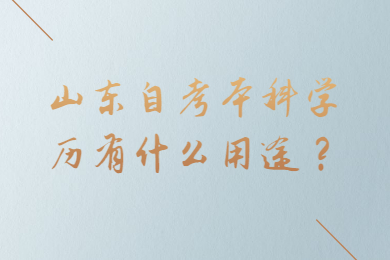 山东自考本科学
历有什么用途？